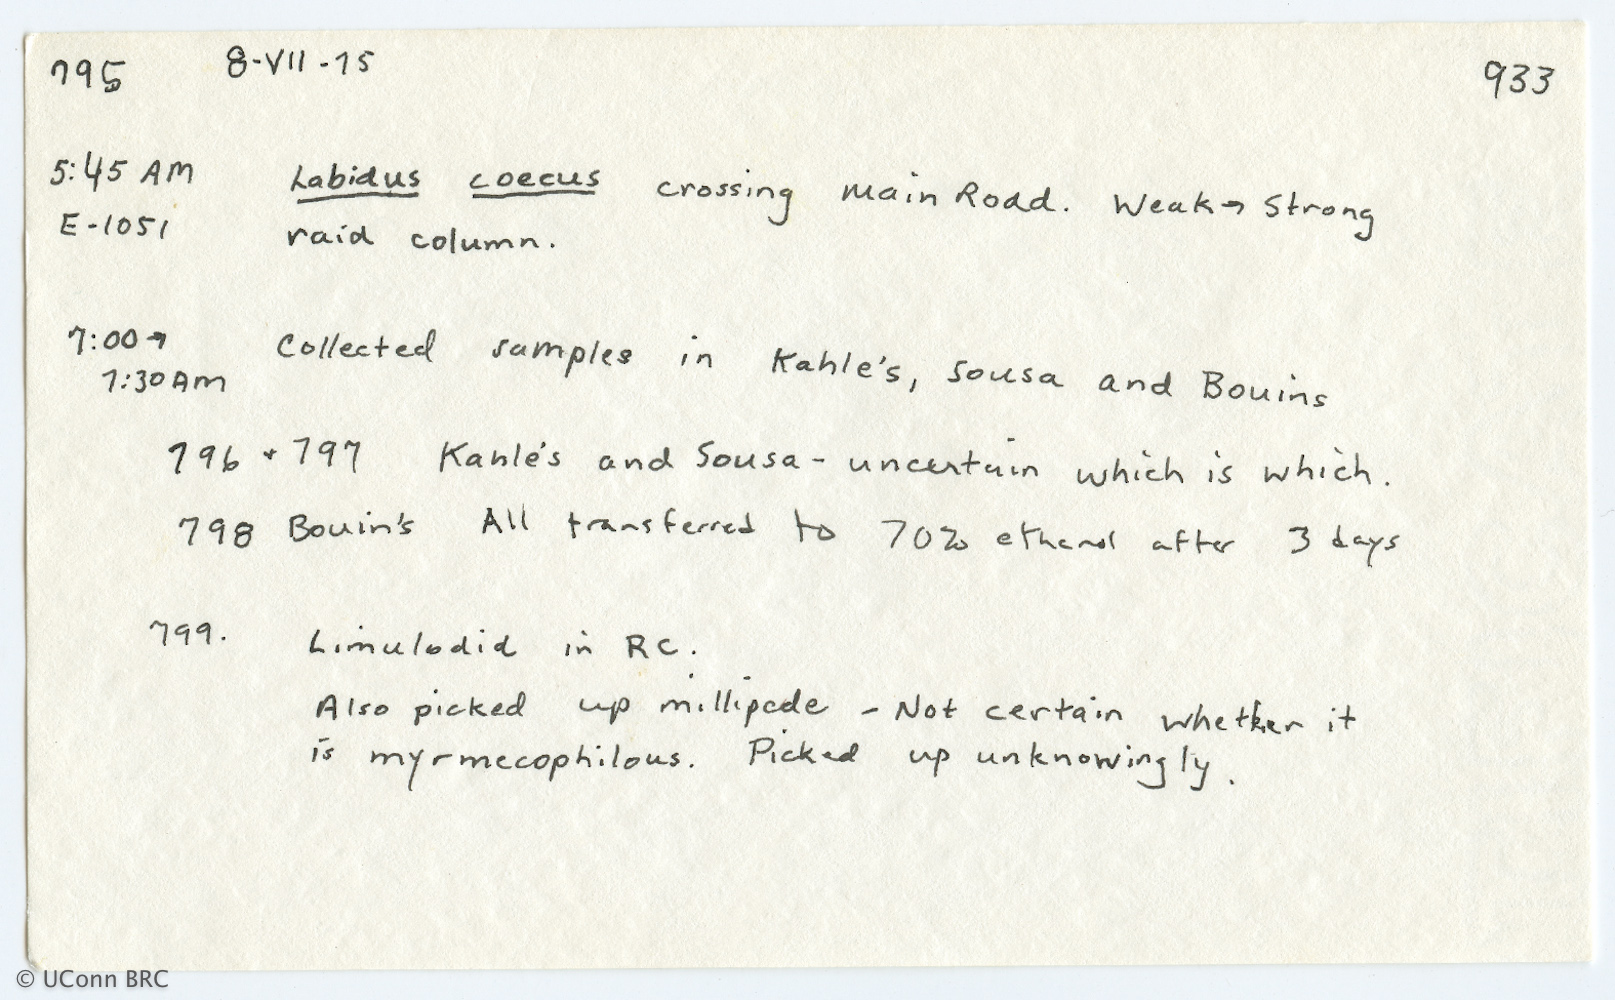 795 8-VII-75 933
5:45 AM Labidus coecus crossing Main Road. Weak → Strong
E-1051 raid column.
7:00 → Collected samples in Kahle's, Sousa and Bouins
7:30 AM
796 + 797 Kahle's and Sousa - uncertain which is which.
798 Bouin's All transferred to 70% ethanol after 3 days
799. Limulodid in RC.
Also picked up millipede - Not certain whether it
is myrmecophilous. Picked up unknowingly.
© UConn BRC